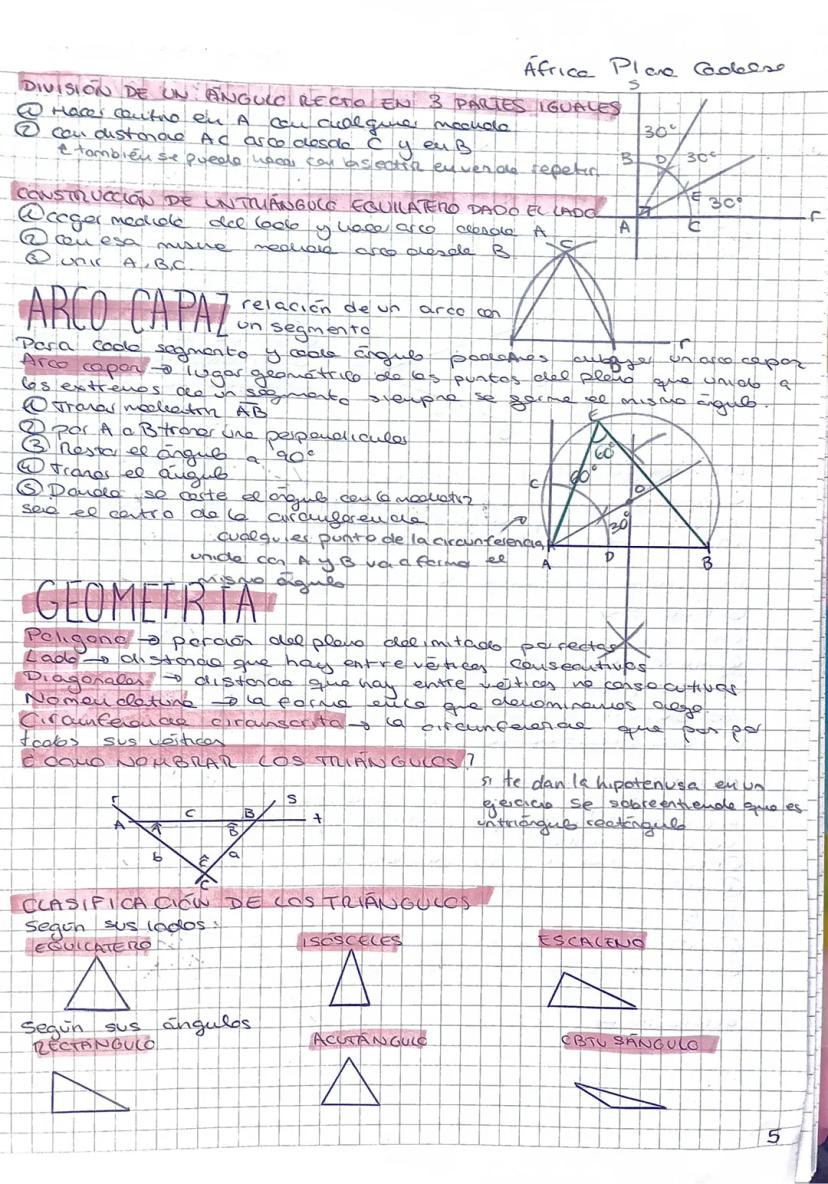 África Plana Cadelso
DIVISIÓN DE UN ÁNGULO RECTO EN 3 PARTES IGUALES
① Hacer centro en A con cualquier medida
② con distancia AC arco desde C y en B
también se puede hacer con bisectriz en vez de repetir
S
30°
B D 30°
E 30°
A C r
CONSTRUCCIÓN DE UN TRIÁNGULO EQUILATERO DADO EL LADO
① coger medida del lado y hace arco desde A
② con esa misma medida arco desde B
③ unir A, B, C.
C
r
ARCO CAPAZ relación de un arco con
un segmento
Para cada segmento y cada ángulo podemos un arco capaz
Arco capaz → lugar geométrico de los puntos del plano que unido a
los extremos de un segmento siempre se forma el mismo ángulo.
① Trazas mediatriz AB
② por A o B trazar una perpendicular
③ Resta el ángulo a 90°
④ Trazas el ángulo
⑤ Donde se corte el ángulo con la mediatriz
será el centro de la circunferencia
cualquier punto de la circunferencia
unida con A y B va a formar el
mismo ángulo
E
60°
C 60° O
30°
A D B
GEOMETRÍA
Polígono → porción del plano delimitado por rectas
Lado → distancia que hay entre vértices consecutivos
Diagonales → distancia que hay entre vértices no consecutivos
Nomenclatura → la forma en la que denominamos algo
Circunferencia circunscrita → la circunferencia que pasa por
todos sus vértices
¿COMO NOMBRAR LOS TRIÁNGULOS?
si te dan la hipotenusa en un
ejercicio se sobreentiende que es
un triángulo rectángulo
r c B s
A Â B̂ t
b Ĉ a
C
CLASIFICACIÓN DE LOS TRIÁNGULOS
Según sus lados:
EQUILATERO ISÓSCELES ESCALENO
Según sus ángulos
RECTÁNGULO ACUTÁNGULO OBTUSÁNGULO
5